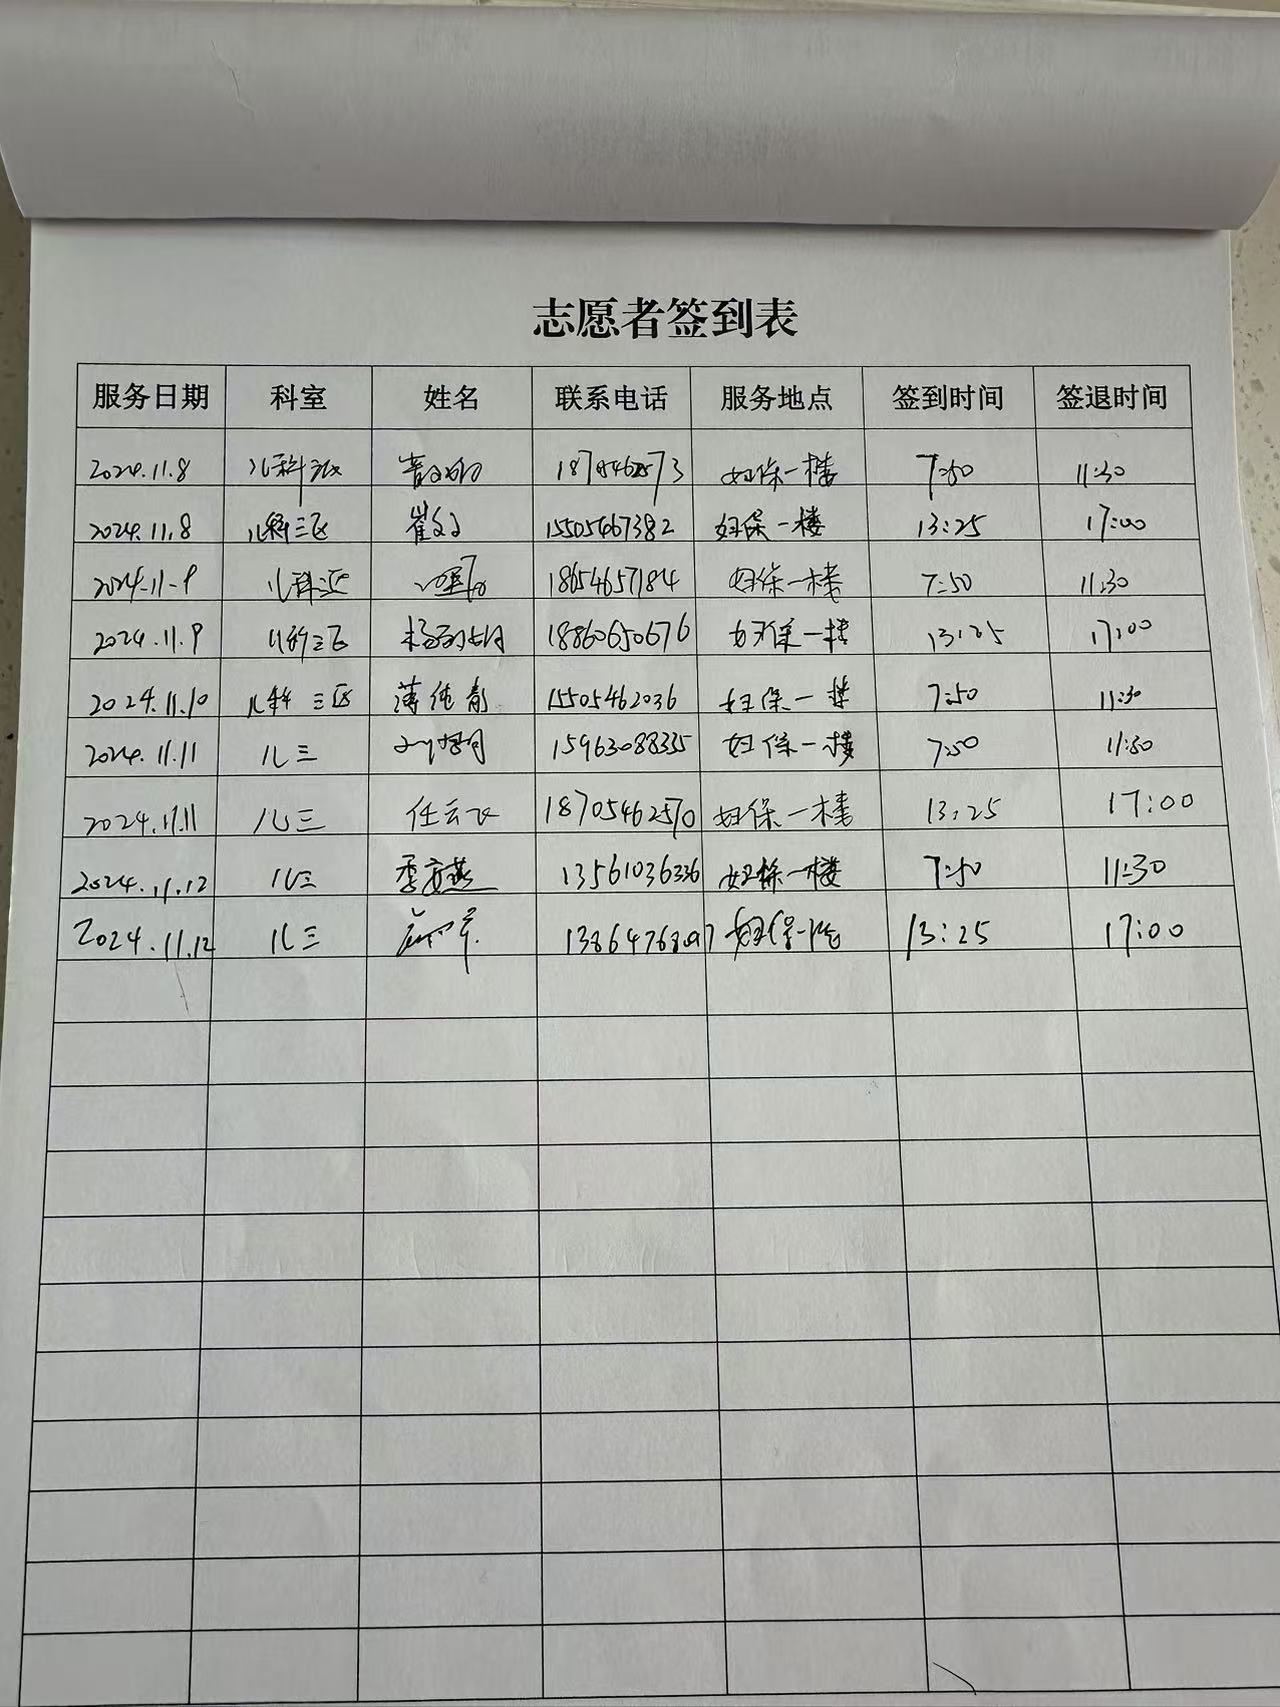 志愿者签到表
服务日期 科室 姓名 联系电话 服务地点 签到时间 签退时间
2024.11.8 儿科三区 妇保一楼 7:50 11:30
2024.11.8 儿科三区 崔 15505467382 妇保一楼 13:25 17:00
2024.11-9 儿科三区 18654657184 妇保一楼 7:50 11:30
2024.11.9 儿科三区 杨 18860650676 妇保一楼 13:25 17:00
2024.11.10 儿科三区 薄纯青 15505462036 妇保一楼 7:50 11:30
2024.11.11 儿三 15963088335 妇保一楼 7:50 11:30
2024.11.11 儿三 任云飞 18705462570 妇保一楼 13:25 17:00
2024.11.12 儿三 季安燕 13561036336 妇保一楼 7:50 11:30
2024.11.12 儿三 妇保一楼 13:25 17:00